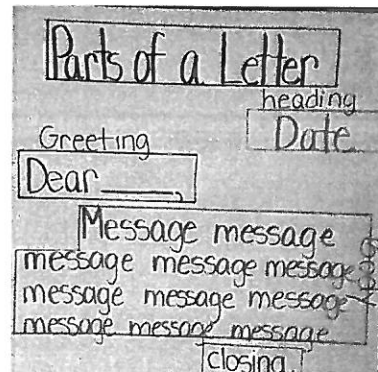 Parts of a Letter
heading
Date
Greeting
Dear ______,
Message message
message message message
message message message
message message message
body
closing,